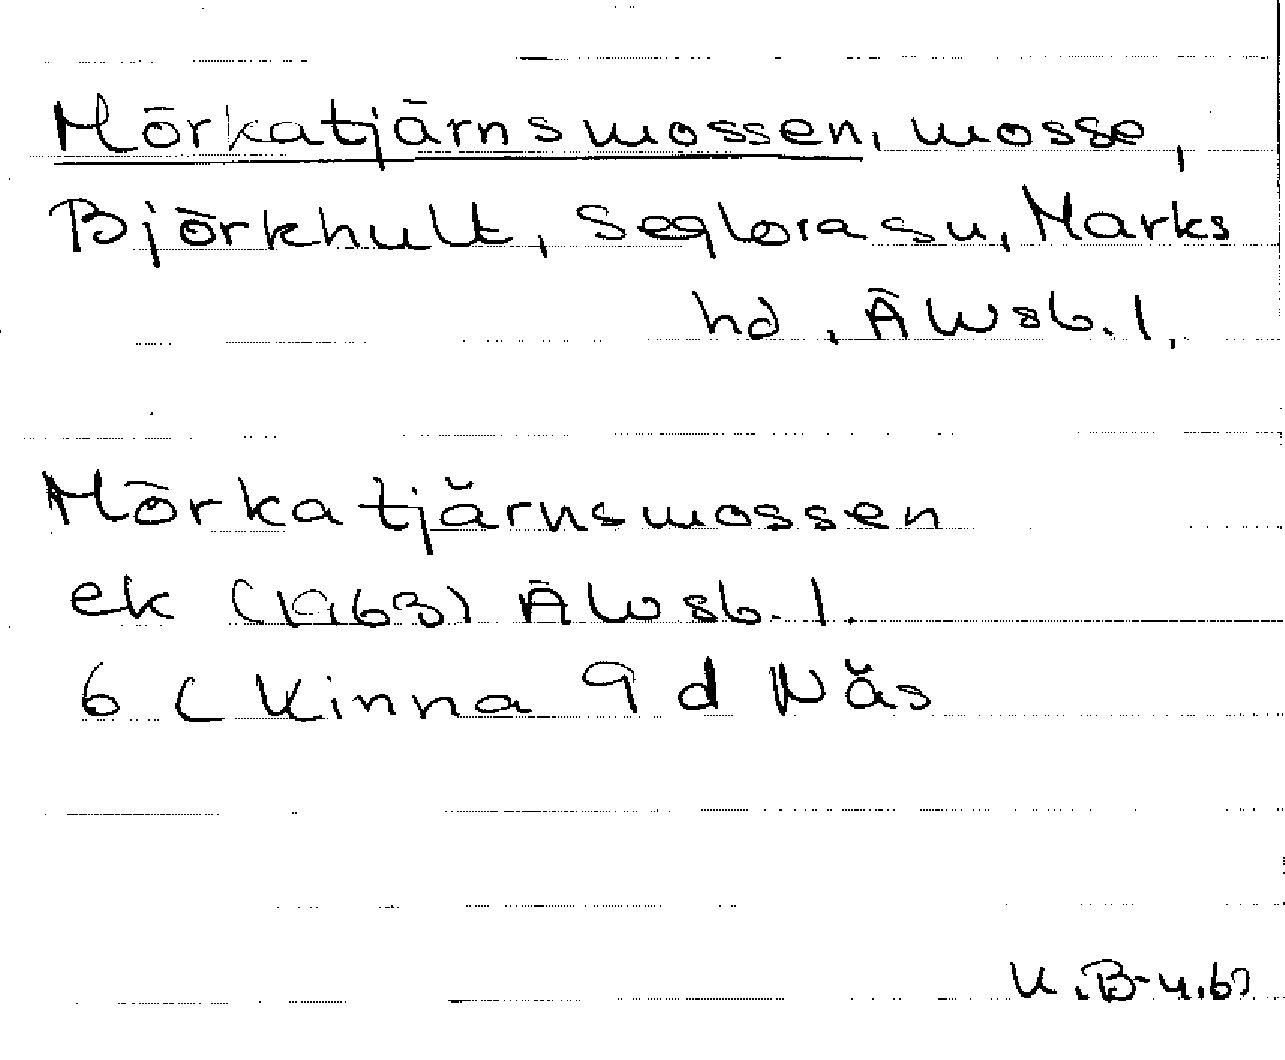 Mörkatjärnsmossen, mosse,
Björkhult, Seglora su, Marks
hd, Älvsb. l.
Mörkatjärnsmossen
ek (1963) Älvsb. l.
6 C Kinna 9 d Näs